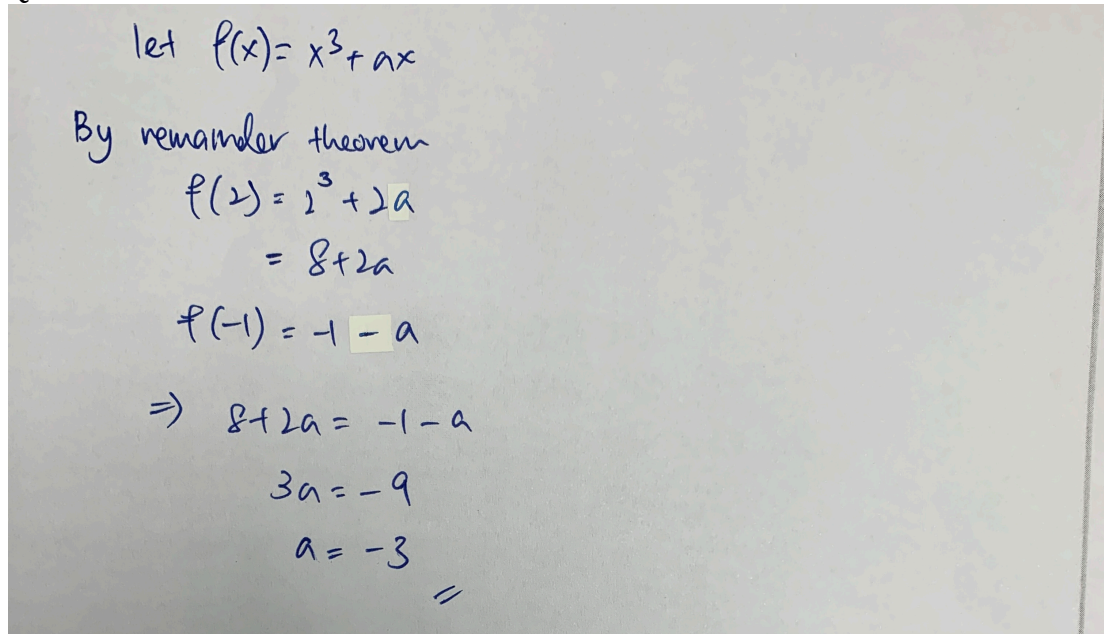 let f(x) = x³ + ax
By remainder theorem
f(2) = 2³ + 2a
= 8 + 2a
f(-1) = -1 - a
⇒ 8 + 2a = -1 - a
3a = -9
a = -3